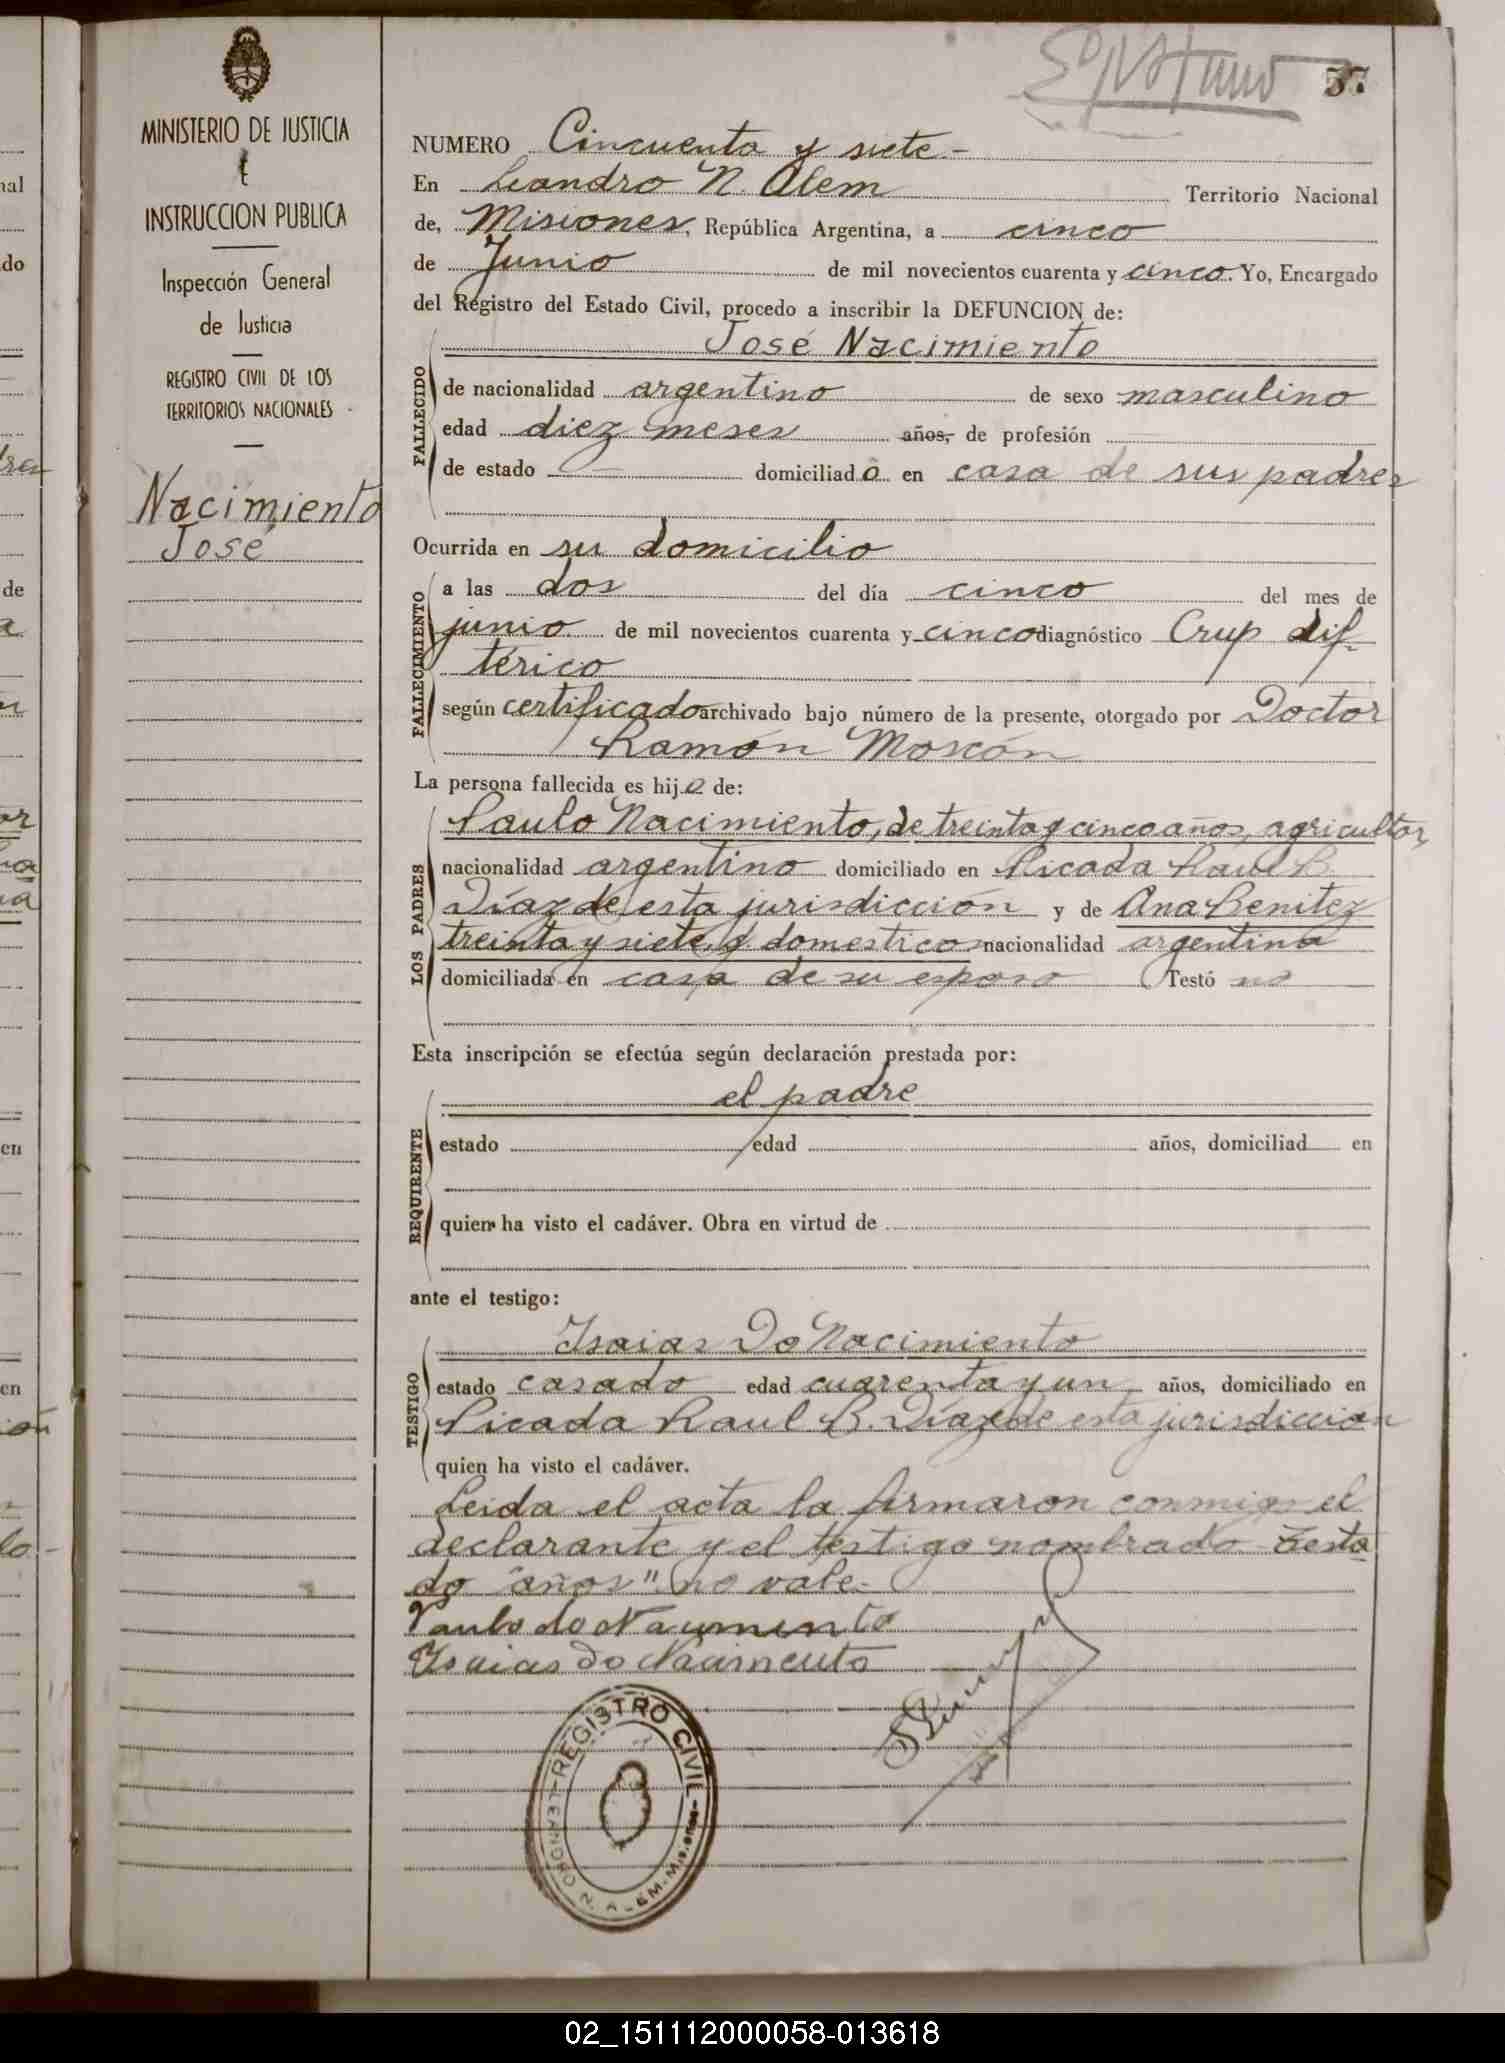 57
MINISTERIO DE JUSTICIA
E
INSTRUCCION PUBLICA
Inspección General
de Justicia
REGISTRO CIVIL DE LOS
TERRITORIOS NACIONALES
Nacimiento
José
NUMERO Cincuenta y siete.-
En Leandro N. Alem Territorio Nacional
de, Misiones, República Argentina, a cinco
de Junio de mil novecientos cuarenta y cinco. Yo, Encargado
del Registro del Estado Civil, procedo a inscribir la DEFUNCION de:
José Nacimiento
FALLECIDO
de nacionalidad argentino de sexo masculino
edad diez meses años, de profesión
de estado domiciliado en casa de sus padres
Ocurrida en su domicilio
FALLECIMIENTO
a las dos del día cinco del mes de
junio de mil novecientos cuarenta y cinco diagnóstico Crup dif-
térico
según certificado archivado bajo número de la presente, otorgado por Doctor
Ramón Moscón
La persona fallecida es hijo de:
LOS PADRES
Paulo Nacimiento, de treinta y cinco años, agricultor,
nacionalidad argentino domiciliado en Picada Raul B.
Díaz de esta jurisdicción y de Ana Benitez
treinta y siete, domestica nacionalidad argentina
domiciliada en casa de su esposo Testó no
Esta inscripción se efectúa según declaración prestada por:
el padre
REQUIRENTE
estado edad años, domiciliad en
quien ha visto el cadáver. Obra en virtud de
ante el testigo:
Isaias Do Nacimiento
TESTIGO
estado casado edad cuarenta y un años, domiciliado en
Picada Raul B. Díaz de esta jurisdiccion
quien ha visto el cadáver.
Leida el acta la firmaron conmigo el
declarante y el testigo nombrado. Testa
do "años" no vale.-
Paulo do Nacimento
Isaias Do Nacimento
REGISTRO CIVIL
LEANDRO N. ALEM - Misiones
02_151112000058-013618